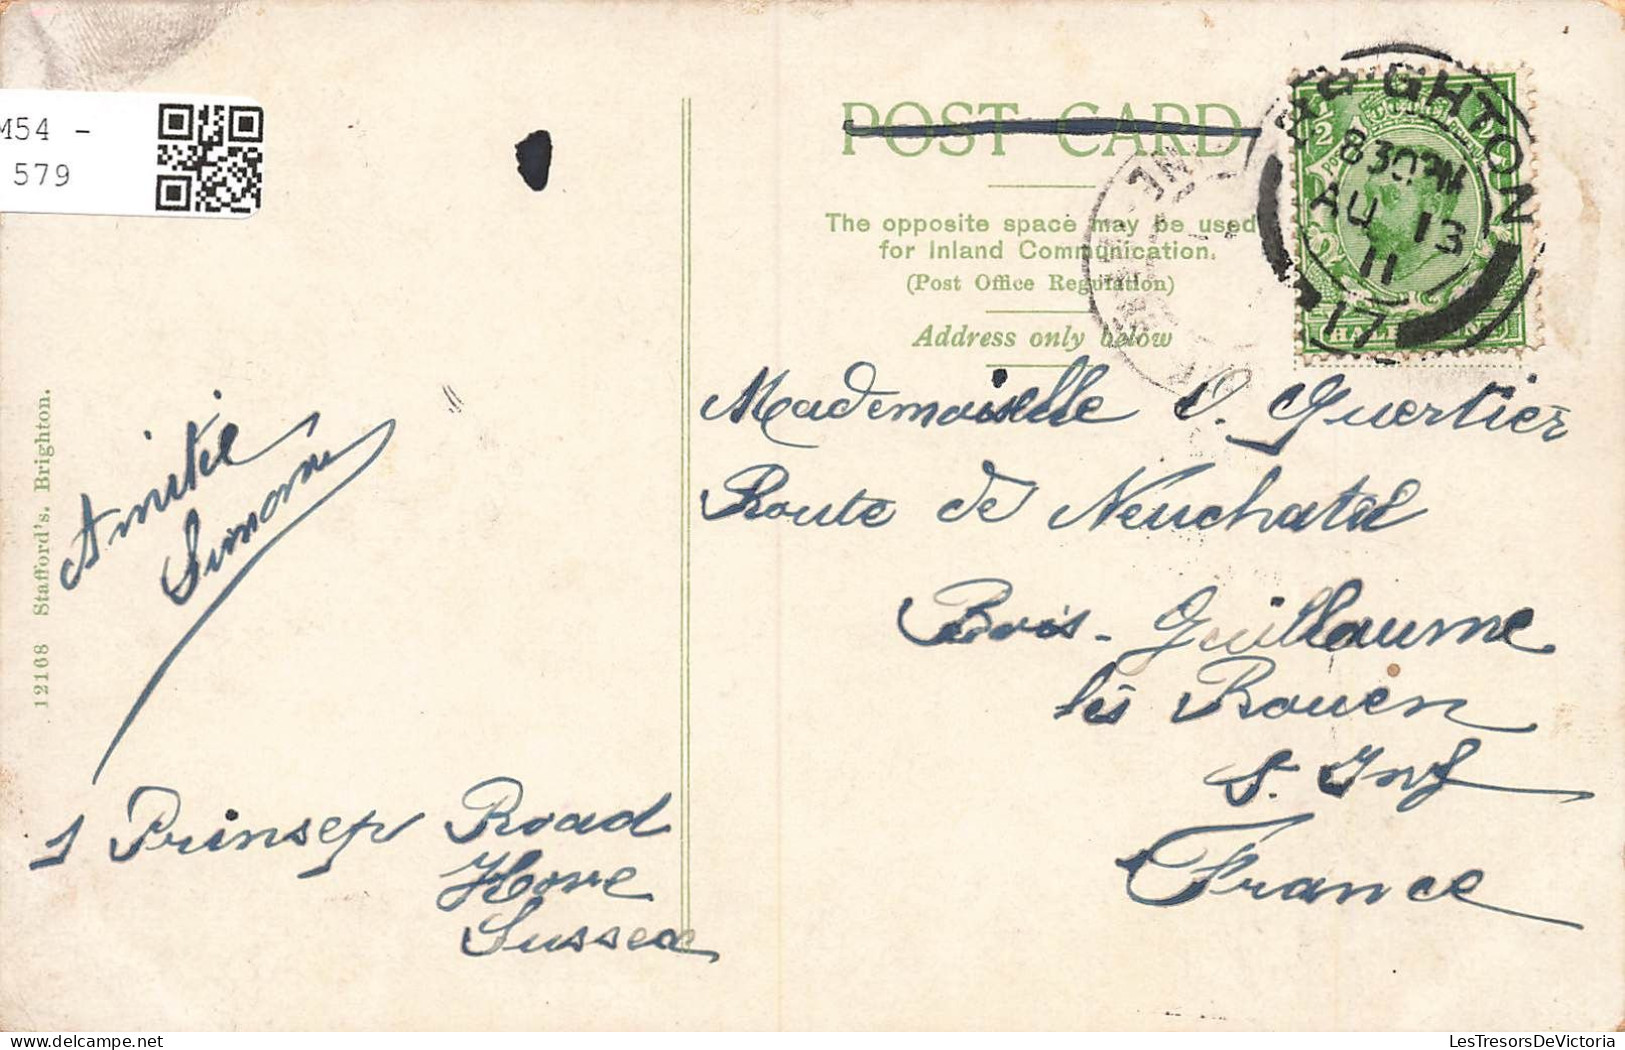 M54 -
579
POST CARD
The opposite space may be used
for Inland Communication.
(Post Office Regulation)
Address only below
BRIGHTON
8 30 PM
AU 13
11
17
12168 Stafford's, Brighton.
Amitié
Simone
1 Prinsep Road
Hove
Sussex
Mademoiselle O. Quertier
Route de Neuchatel
Bois-Guillaume
lès Rouen
S. Inf
France
LesTresorsDeVictoria.com